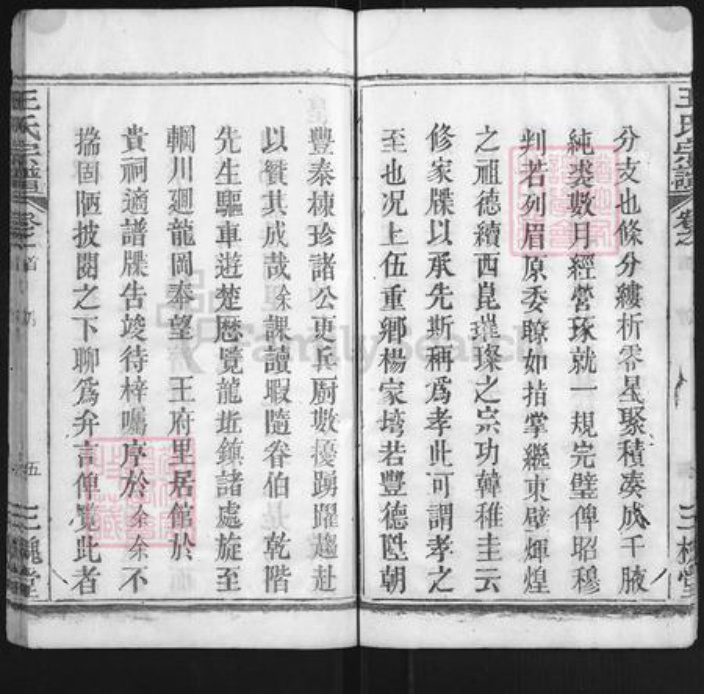 分支也條分縷析零星聚積湊成千腋
純裘數月經營琢就一規完璧俾昭穆
判若列眉原委瞭如指掌繼東壁煇煌
之祖德續西崑璀璨之宗功韓稚圭云
修家牒以承先斯稱爲孝此可謂孝之
至也况上伍重鄉楊家塆若豐德陞朝
豐泰棟珍諸公更兵厨數擾踴躍趨赴
以贊其成哉余課讀暇隨眷伯乾階
先生驅車遊楚歷覽龍坵鎮諸處旋至
輞川廻龍岡奉望 王府里居館於
貴祠適譜牒告竣待梓囑序於余余不
揣固陋披閱之下聊爲弁言俾覽此者
王氏宗譜
卷之
首
五
三槐堂
王氏宗譜
卷之
三槐堂
FamilySearch